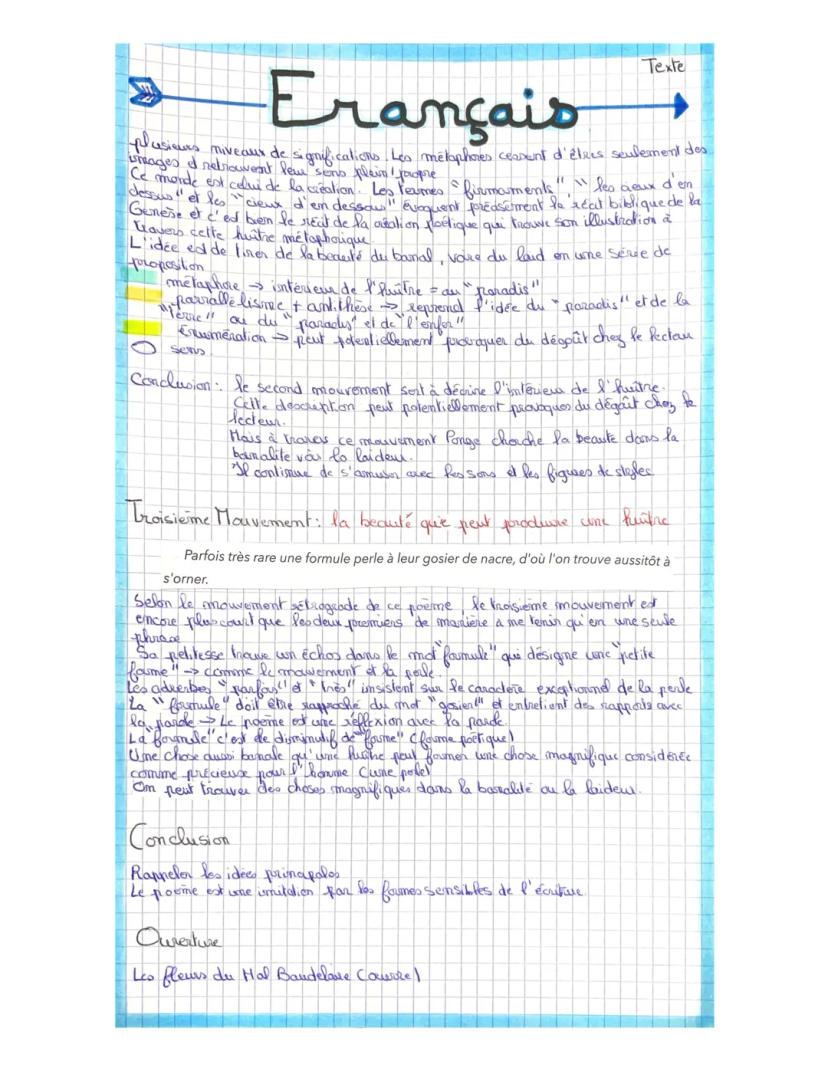 Texte
Français
plusieurs niveaux de significations. Les métaphores cessent d'êtres seulement des
images et retrouvent leur sens plein/propre
Ce monde est celui de la création. Les termes "firmaments", "les cieux d'en
dessus" et les "cieux d'en dessous" évoquent précisement le récit biblique de la
Genèse et c'est bien le récit de la création poétique qui trouve son illustration à
travers cette huître métaphorique.
L'idée est de tirer de la beauté du banal, voire du laid en une série de
proposition
métaphore → intérieur de l'huître = au "paradis"
parrallélisme + antithèse → reprend l'idée du "paradis" et de la
"terre" ou du "paradis" et de "l'enfer"
Énumération → peut potentiellement provoquer du dégoût chez le lecteur
sens
Conclusion : le second mouvement sert à décrire l'intérieur de l'huître.
Cette description peut potentiellement provoquer du dégoût chez le
lecteur.
Mais à travers ce mouvement Ponge cherche la beauté dans la
banalité voir la laideur.
Il continue de s'amuser avec les sons et les figures de styles
Troisième Mouvement : la beauté que peut produire une huître
Parfois très rare une formule perle à leur gosier de nacre, d'où l'on trouve aussitôt à
s'orner.
Selon le mouvement rétrograde de ce poème, le troisième mouvement est
encore plus court que les deux premiers de manière à me tenir qu'en une seule
phrase
Sa petitesse trouve un échos dans le mot "formule" qui désigne une "petite
forme" → comme le mouvement et la perle.
Les adverbes "parfois" et "très" insistent sur le caractère exceptionnel de la perle
La "formule" doit être rapproché du mot "gosier" et entretient des rapports avec
la parole → Le poème est une réflexion avec la parole.
La "formule" c'est le diminutif de "forme" (forme poétique)
Une chose aussi banale qu'une huître peut former une chose magnifique considérée
comme précieuse pour l'homme (une perle)
On peut trouver des choses magnifiques dans la banalité ou la laideur.
Conclusion
Rappeler les idées principales
Le poème est une imitation par les formes sensibles de l'écriture.
Ouverture
Les fleurs du Mal Baudelaire (œuvre)